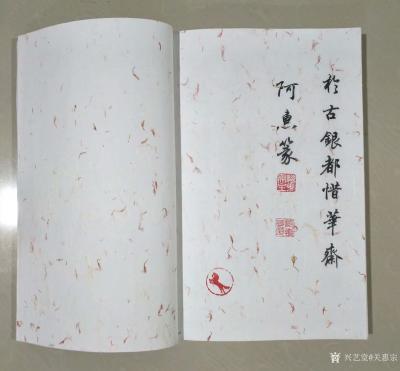 於古銀都惜華齋
阿惠篆
兴艺堂@关惠宗